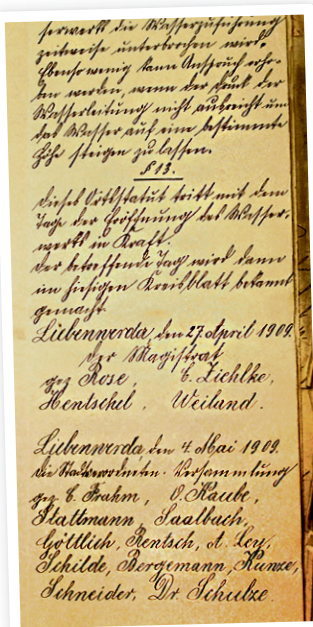 serwerk die Wasserzuführung
zeitweise unterbrochen wird.
Ebensowenig kann Anspruch erho-
ben werden, wenn der Druck der
Wasserleitung nicht ausreicht um
das Wasser auf eine bestimmte
Höhe steigen zu lassen.
§ 13.
Dieses Ortsstatut tritt mit dem
Tage der Eröffnung des Wasser-
werks in Kraft.
Der betreffende Tag wird dann
im hiesigen Kreisblatt bekannt
gemacht.
Liebenwerda, den 27. April 1909.
der Magistrat
gez Rose, E. Ziehlke,
Hentschel, Weiland.
Liebenwerda, den 4. Mai 1909.
die Stadtverordneten-Versammlung
gez C. Frahm, O. Kaube,
Stattmann, Saalbach,
Göttlich, Rentsch, A. Ley,
Schilde, Bergemann, Kunze,
Schneider, Dr. Schulze.